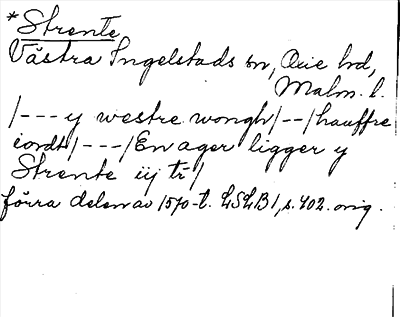 *Strente
Västra Ingelstads sn, Oxie hd,
Malm. l.
/--- y westre wongh/--/hauffre
iordt/---/En ager ligger y
Strente iij tr/
förra delen av 1570-t. LSLB1, s. 402. orig.